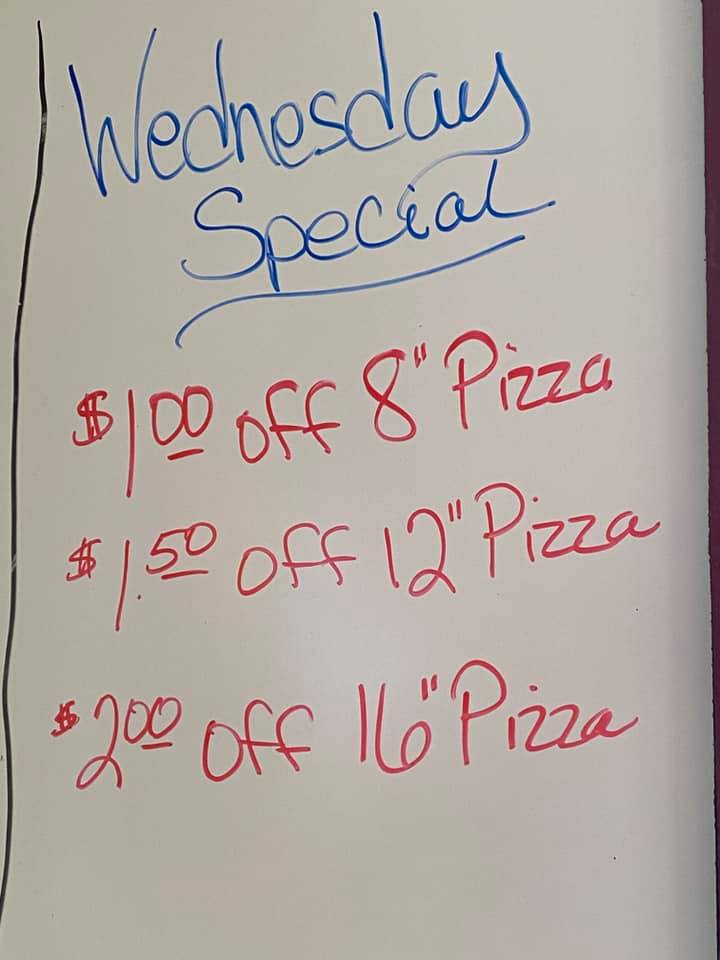 Wednesday
Special
$1.00 off 8" Pizza
$1.50 off 12" Pizza
$2.00 off 16" Pizza